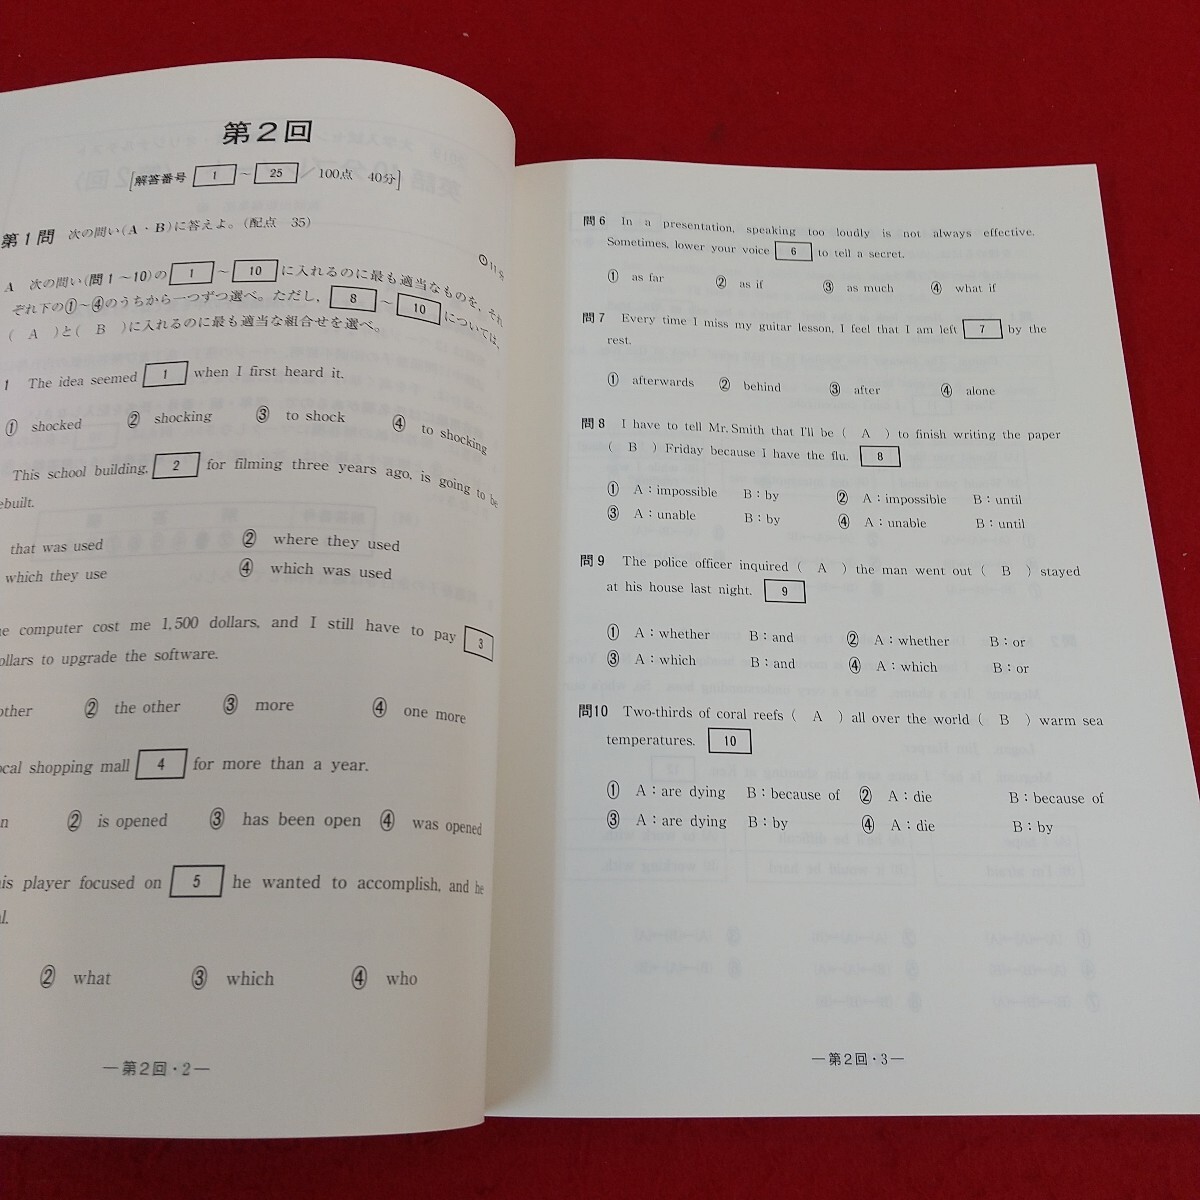 第2回
[解答番号 1 ～ 25 100点 40分]
第1問 次の問い(A・B)に答えよ。(配点 35)
A 次の問い(問1～10)の 1 ～ 10 に入れるのに最も適当なものを、それ
ぞれ下の①～④のうちから一つずつ選べ。ただし、 8 ～ 10 については、
( A )と( B )に入れるのに最も適当な組合せを選べ。
1 The idea seemed 1 when I first heard it.
① shocked ② shocking ③ to shock ④ to shocking
This school building, 2 for filming three years ago, is going to be
ebuilt.
that was used ② where they used
which they use ④ which was used
e computer cost me 1,500 dollars, and I still have to pay 3
ollars to upgrade the software.
other ② the other ③ more ④ one more
ocal shopping mall 4 for more than a year.
n ② is opened ③ has been open ④ was opened
is player focused on 5 he wanted to accomplish, and he
l.
② what ③ which ④ who
―第2回・2―
問6 In a presentation, speaking too loudly is not always effective.
Sometimes, lower your voice 6 to tell a secret.
① as far ② as if ③ as much ④ what if
問7 Every time I miss my guitar lesson, I feel that I am left 7 by the
rest.
① afterwards ② behind ③ after ④ alone
問8 I have to tell Mr. Smith that I'll be ( A ) to finish writing the paper
( B ) Friday because I have the flu. 8
① A：impossible B：by ② A：impossible B：until
③ A：unable B：by ④ A：unable B：until
問9 The police officer inquired ( A ) the man went out ( B ) stayed
at his house last night. 9
① A：whether B：and ② A：whether B：or
③ A：which B：and ④ A：which B：or
問10 Two-thirds of coral reefs ( A ) all over the world ( B ) warm sea
temperatures. 10
① A：are dying B：because of ② A：die B：because of
③ A：are dying B：by ④ A：die B：by
―第2回・3―